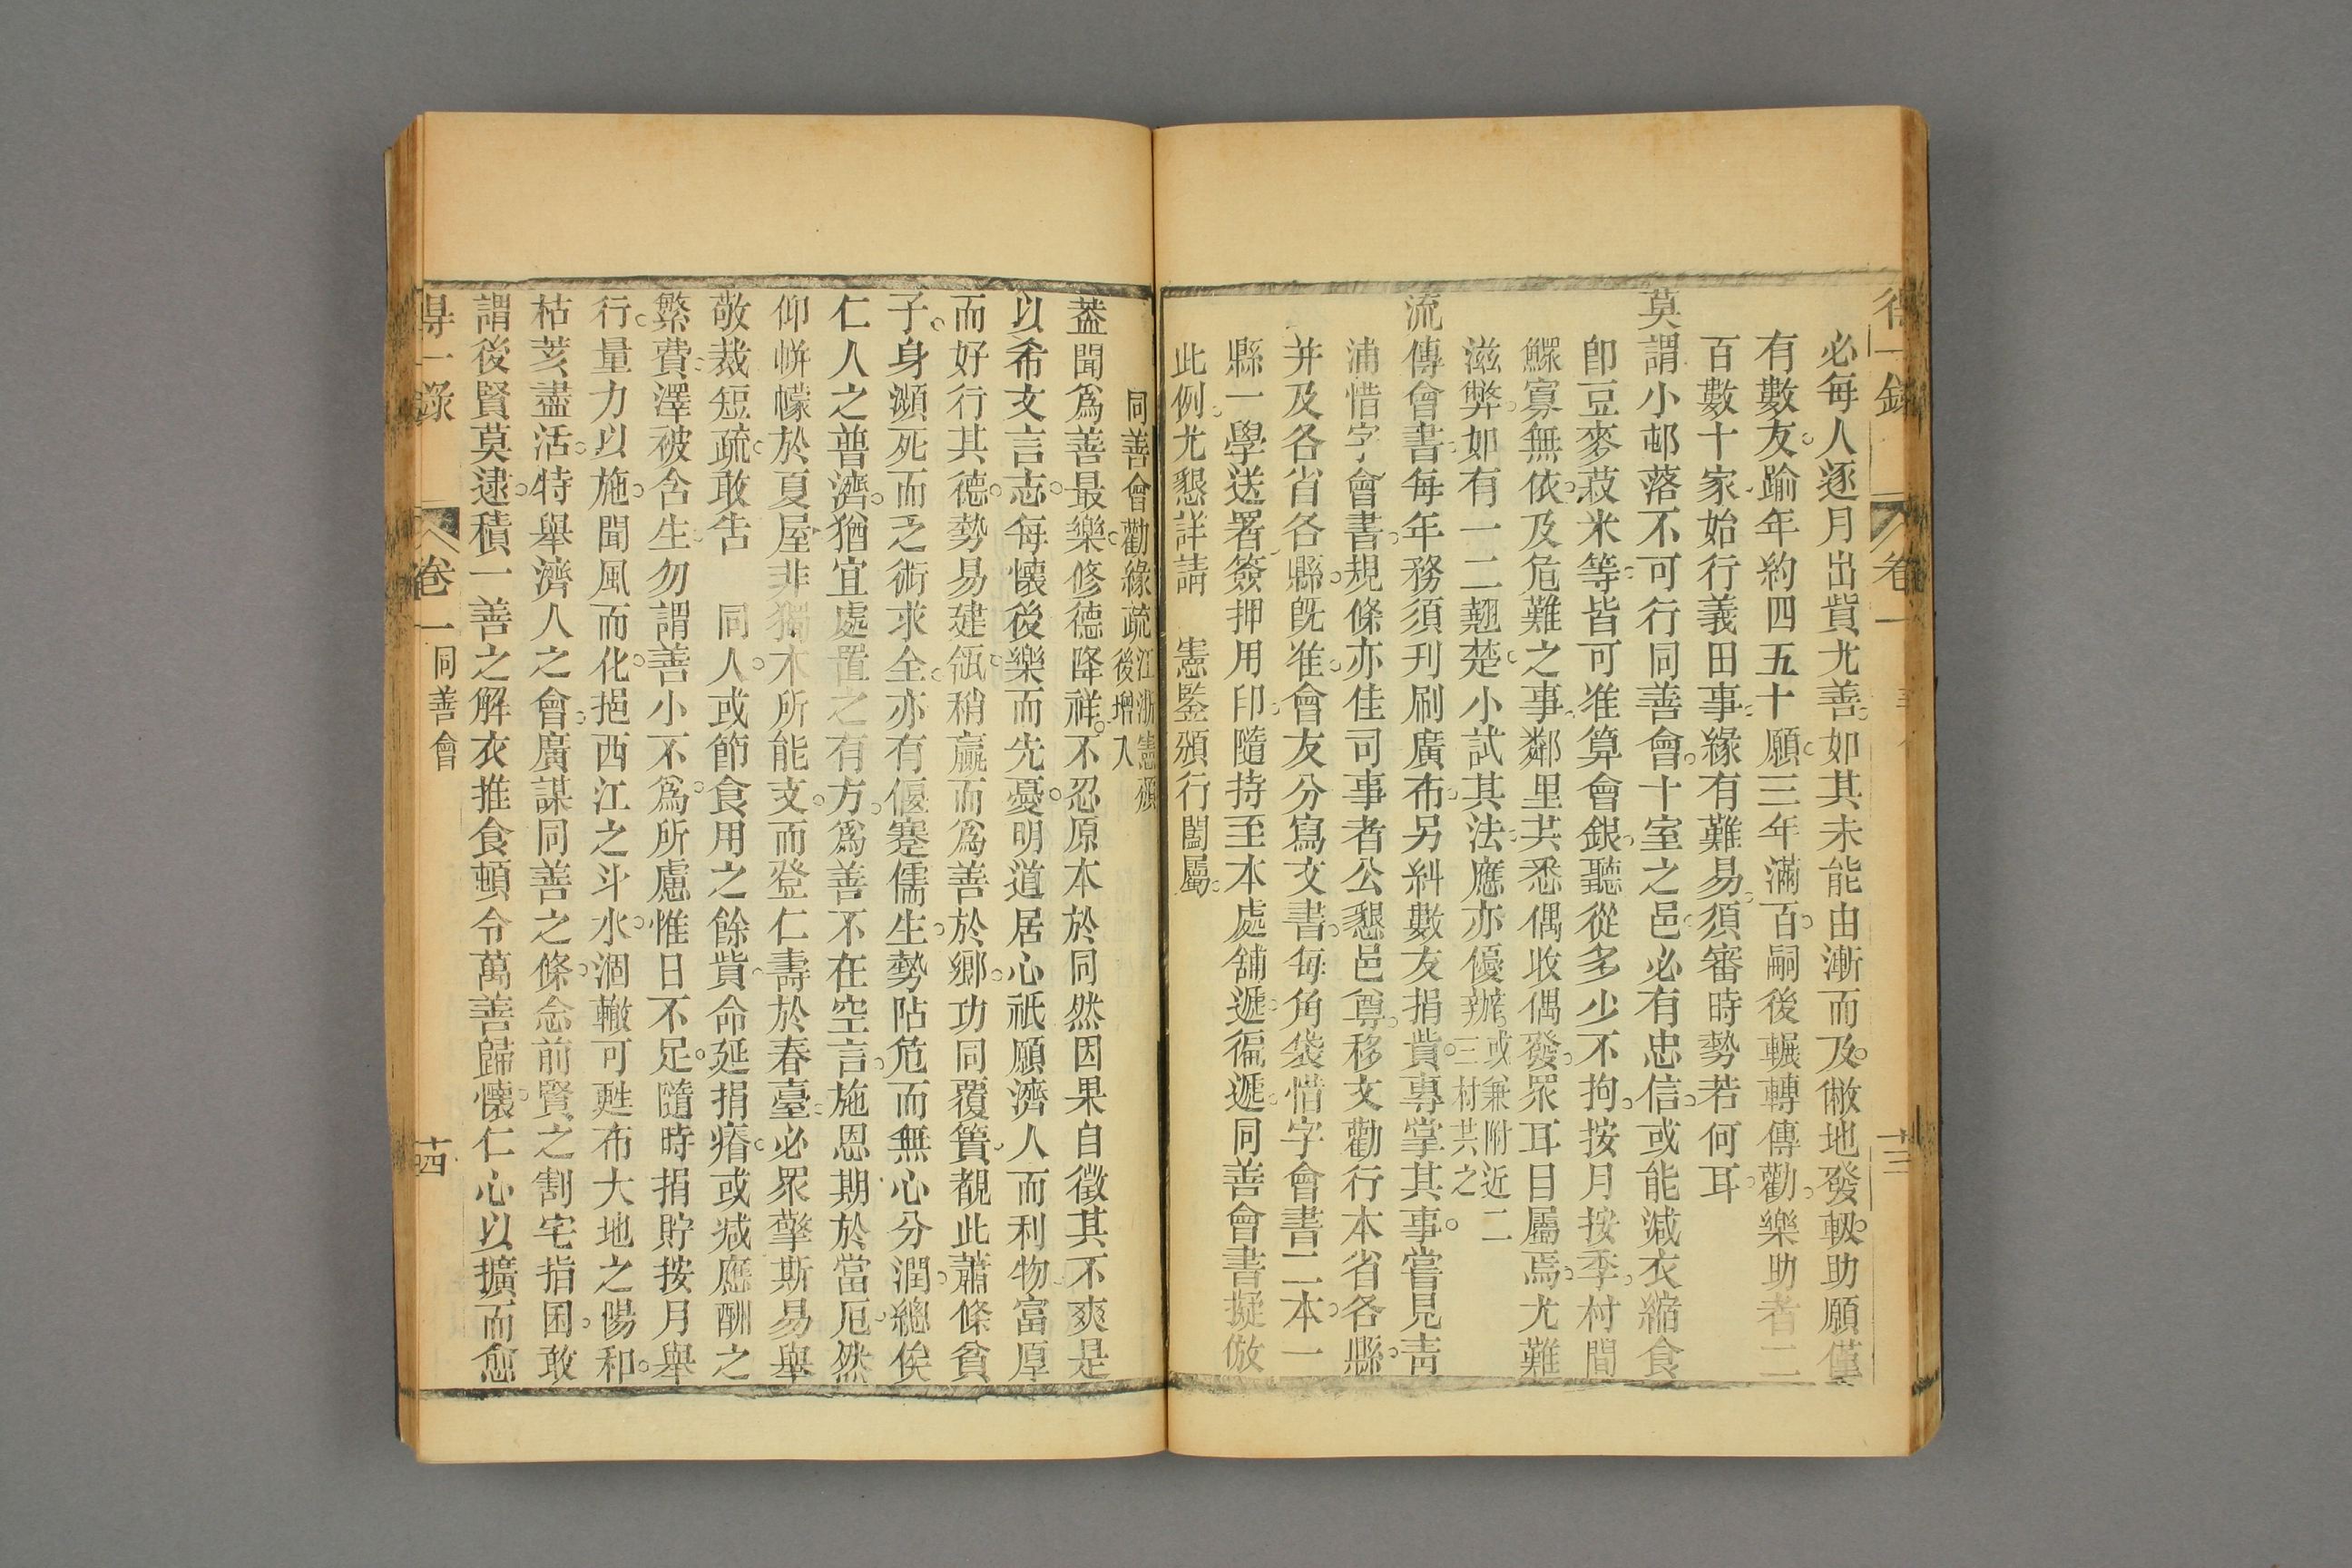 得一錄 卷一 十三
必每人逐月出貲尤善如其未能由漸而及僻地發軔助願僅
有數友踰年約四五十願三年滿百嗣後輾轉傳勸樂助者二
百數十家始行義田事緣有難易須審時勢若何耳
莫謂小邨落不可行同善會十室之邑必有忠信或能減衣縮食
卽豆麥菽米等皆可准算會銀聽從多少不拘按月按季村間
鰥寡無依及危難之事鄰里共悉偶收偶發眾耳目屬焉尤難
滋弊如有一二翹楚小試其法應亦優辦或兼附近二
三村共之
流傳會書每年務須刋刷廣布另糾數友捐貲專掌其事嘗見靑
浦惜字會書規條亦佳司事者公懇邑尊移文勸行本省各縣
并及各省各縣旣准會友分寫文書每角袋惜字會書二本一
縣一學送署簽押用印隨持至本處舖遞徧遞同善會書擬倣
此例尤懇詳請 憲鑒頒行闔屬
同善會勸緣疏江浙憲頒
後增入
葢聞爲善最樂修德降祥不忍原本於同然因果自徵其不爽是
以希文言志每懷後樂而先憂明道居心祇願濟人而利物富厚
而好行其德勢易建瓴稍贏而爲善於鄉功同覆簣覩此蕭條貧
子身瀕死而乏術求全亦有偃蹇儒生勢阽危而無心分潤總俟
仁人之普濟猶宜處置之有方爲善不在空言施恩期於當厄然
仰帡幪於夏屋非獨木所能支而登仁壽於春臺必眾擎斯易舉
敬裁短疏敢吿 同人或節食用之餘貲命延捐瘠或減應酬之
繁費澤被含生勿謂善小不爲所慮惟日不足隨時捐貯按月舉
行量力以施聞風而化挹西江之斗水涸轍可甦布大地之陽和
枯荄盡活特舉濟人之會廣謀同善之條念前賢之割宅指囷敢
謂後賢莫逮積一善之解衣推食頓令萬善歸懷仁心以擴而愈
得一錄 卷一 同善會 十四